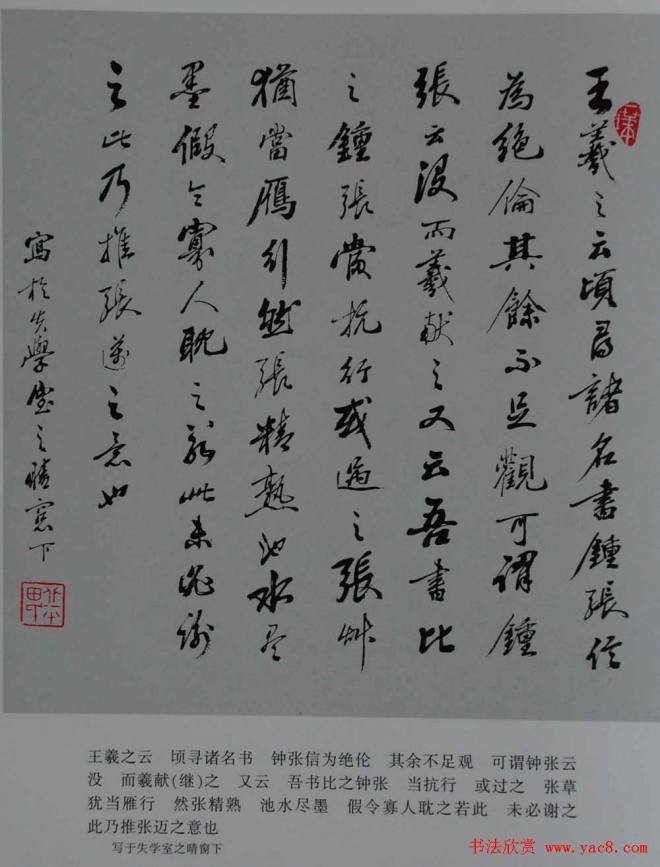 王羲之云頃尋諸名書鍾張信
為絕倫其餘不足觀可謂鍾
張云没而羲獻之又云吾書比
之鍾張當抗行或過之張草
猶當鴈行然張精熟池水尽
墨假令寡人耽之若此未必谢
之此乃推張邁之意也
寫於失學堂之晴窓下
王羲之云 顷寻诸名书 钟张信为绝伦 其余不足观 可谓钟张云
没 而羲献(继)之 又云 吾书比之钟张 当抗行 或过之 张草
犹当雁行 然张精熟 池水尽墨 假令寡人耽之若此 未必谢之
此乃推张迈之意也
写于失学室之晴窗下
书法欣赏 www.yac8.com